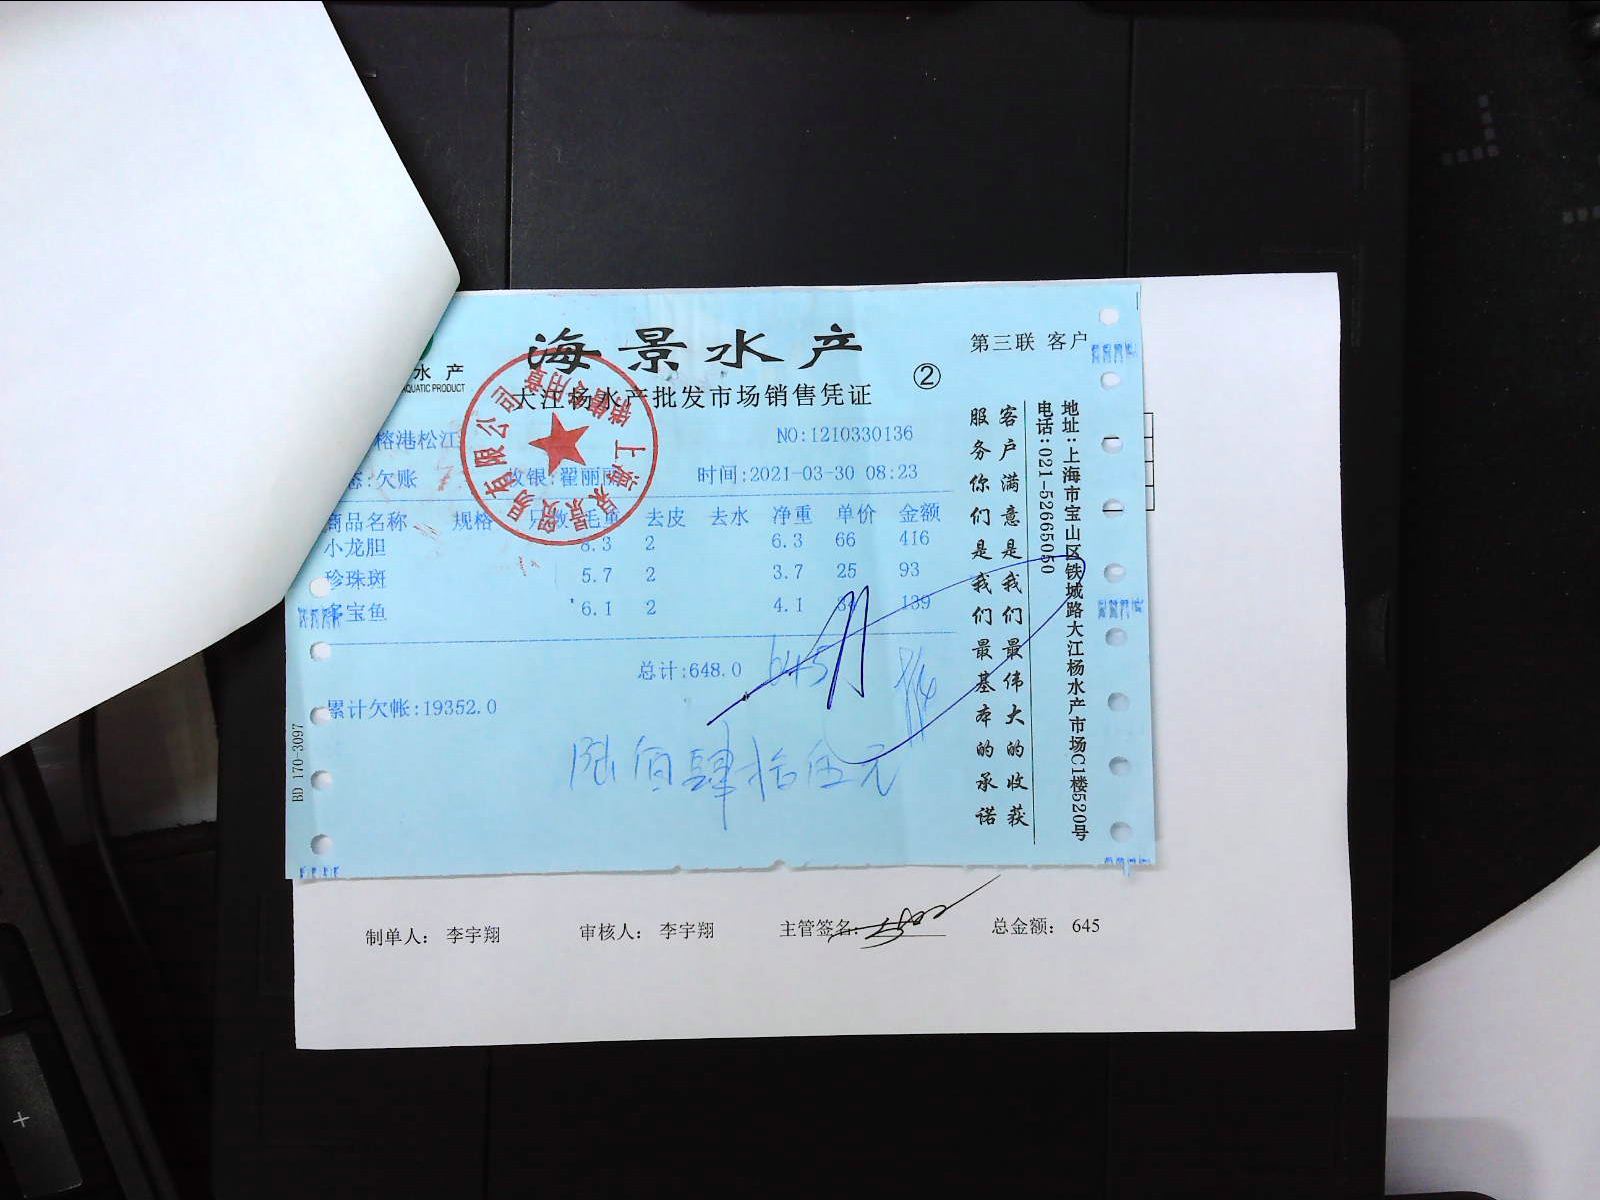 海景水产
第三联 客户
水产
AQUATIC PRODUCT
大江杨水产批发市场销售凭证
②
榕港松江
NO:1210330136
欠账
收银:翟丽
时间:2021-03-30 08:23
商品名称 规格 只数 毛重 去皮 去水 净重 单价 金额
小龙胆 8.3 2 6.3 66 416
珍珠斑 5.7 2 3.7 25 93
多宝鱼 6.1 2 4.1 139
总计:648.0
645
累计欠帐:19352.0
陆佰肆拾伍元
BD 170-3097
客户满意是我们最伟大的收获
服务你们是我们最基本的承诺
地址:上海市宝山区铁城路大江杨水产市场C1楼520号
电话:021-52665050
制单人: 李宇翔
审核人: 李宇翔
主管签名:
总金额: 645